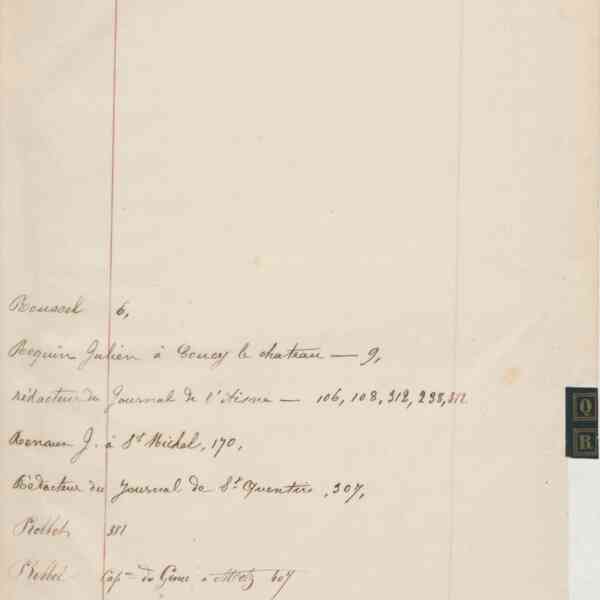 Roussel 6,
Requin Julien à Coucy le chateau — 9,
rédacteur du Journal de l'Aisne — 106, 108, 312, 238, 312
Q
R
J. à St Michel, 170,
Rédacteur du Journal de St Quentin, 307,
381
Capne du Génie à Metz 407